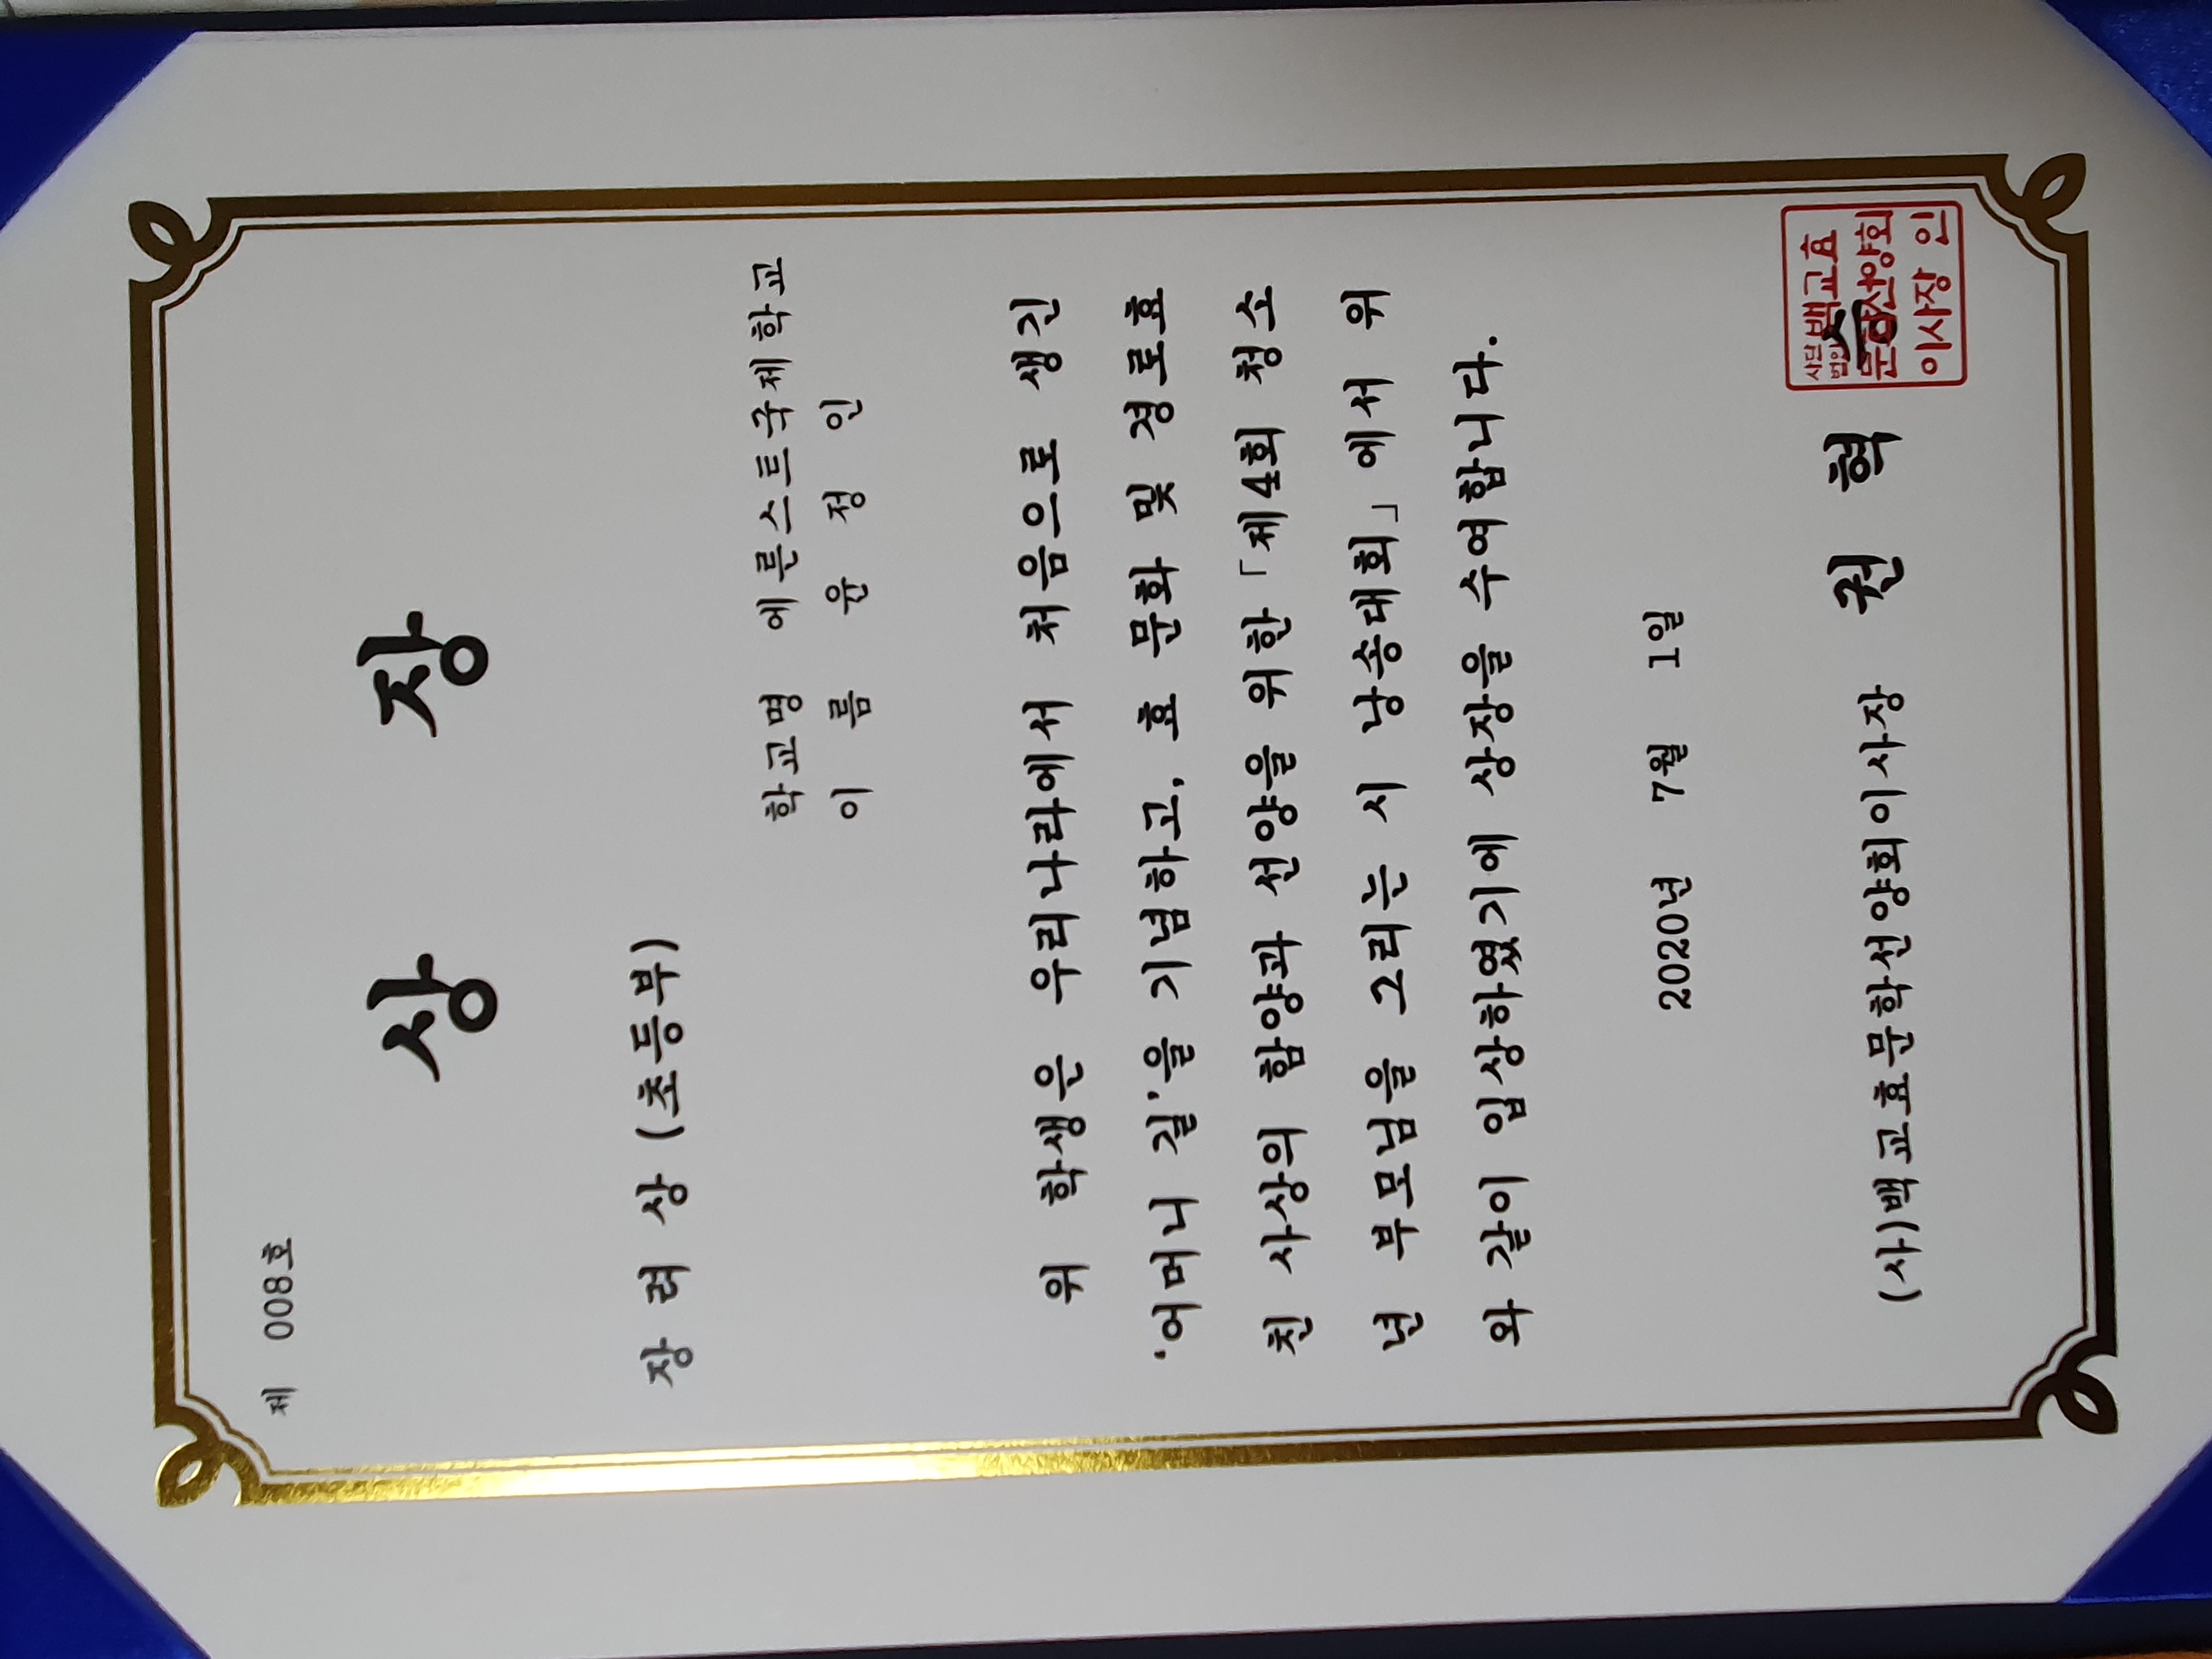 제 008호
상 장
장 려 상 (초등부)
학교명 에른스트국제학교
이 름 윤 정 인
위 학생은 우리나라에서 처음으로 생긴
'어머니 길'을 기념하고, 효 문화 및 경로효
친 사상의 함양과 선양을 위한 「제4회 청소
년 부모님을 그리는 시 낭송대회」에서 위
와 같이 입상하였기에 상장을 수여합니다.
2020년 7월 1일
(사)백교효문학선양회이사장 권 혁
사단법인 백교효
문학선양회
이사장 인